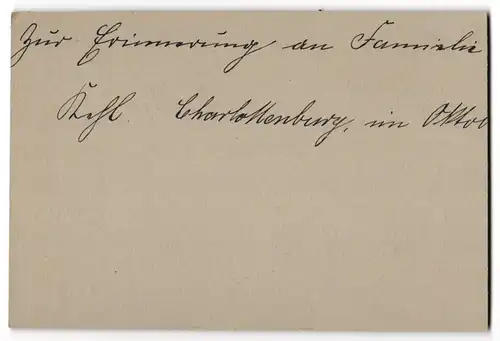 Zur Erinnerung an Familie
Kehl. Charlottenburg, im Oktob